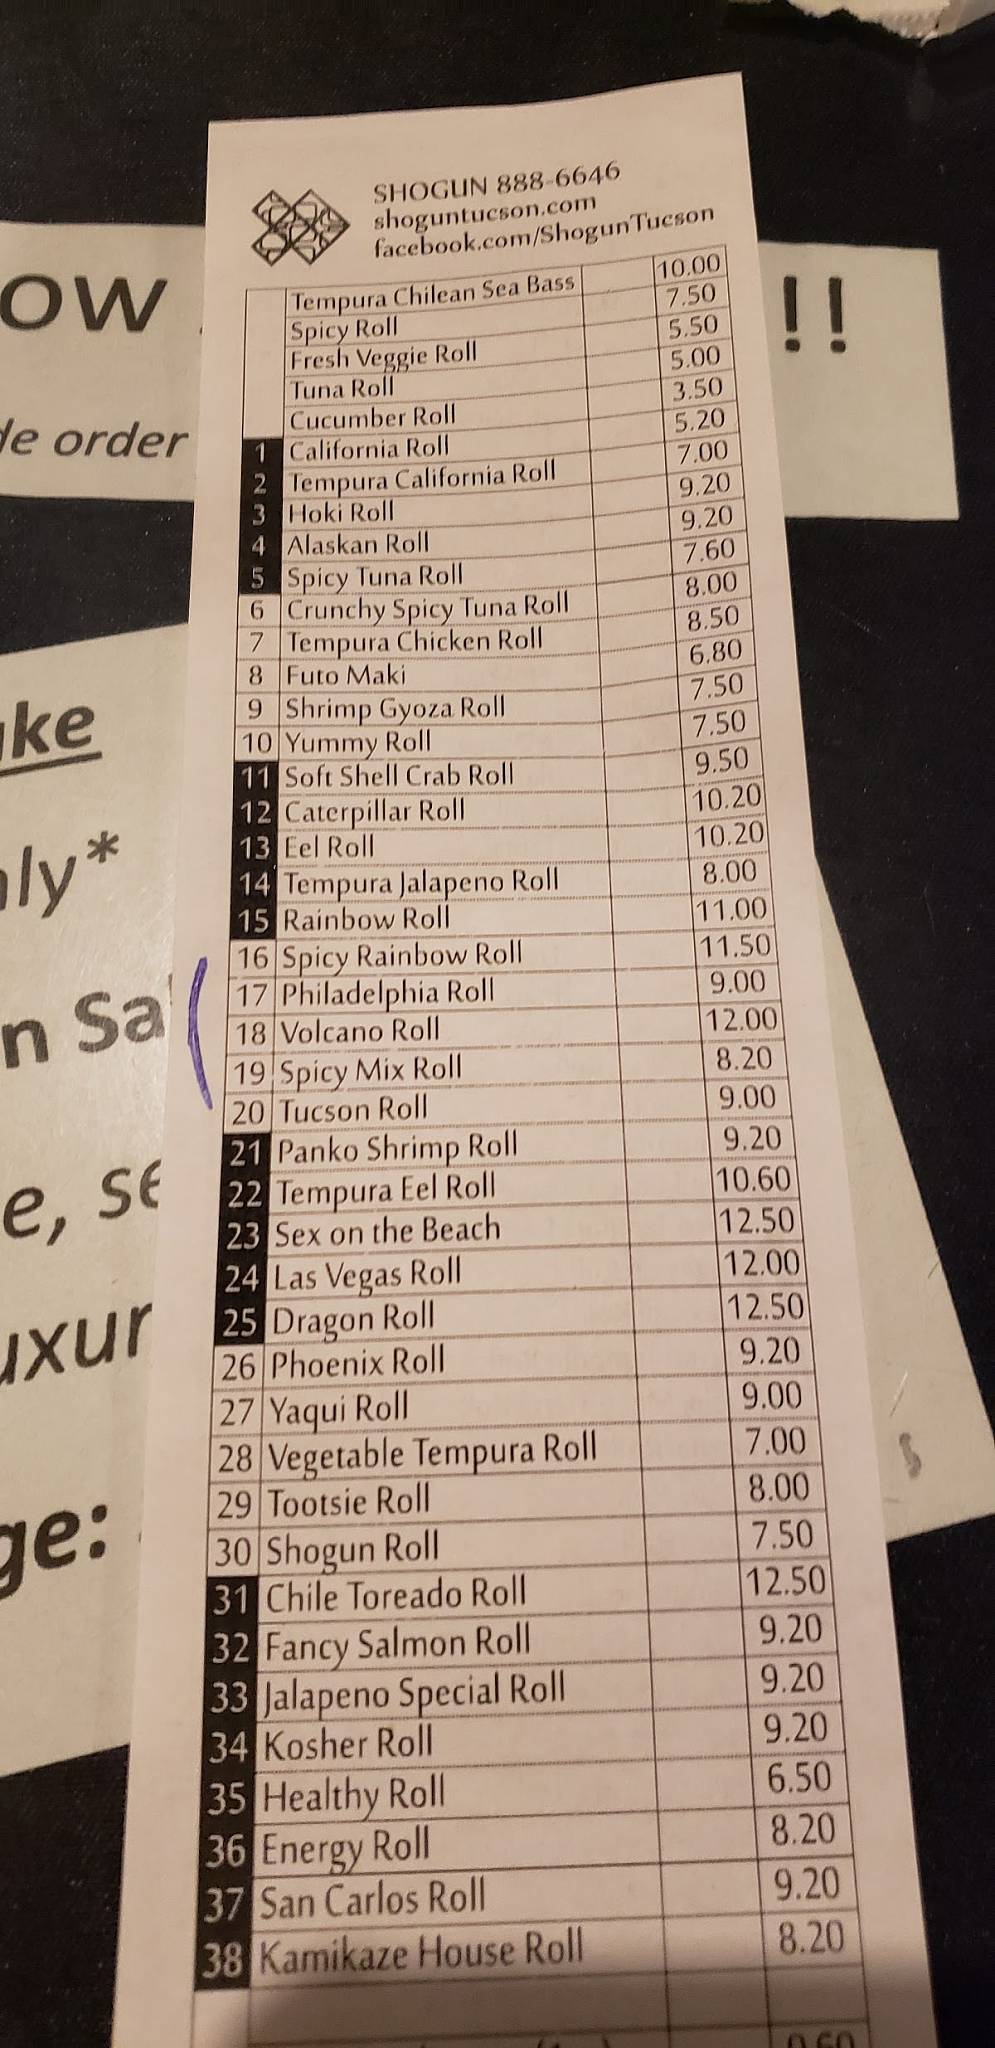 SHOGUN 888-6646
shoguntucson.com
facebook.com/ShogunTucson
Tempura Chilean Sea Bass 10.00
Spicy Roll 7.50
Fresh Veggie Roll 5.50
Tuna Roll 5.00
Cucumber Roll 3.50
1 California Roll 5.20
2 Tempura California Roll 7.00
3 Hoki Roll 9.20
4 Alaskan Roll 9.20
5 Spicy Tuna Roll 7.60
6 Crunchy Spicy Tuna Roll 8.00
7 Tempura Chicken Roll 8.50
8 Futo Maki 6.80
9 Shrimp Gyoza Roll 7.50
10 Yummy Roll 7.50
11 Soft Shell Crab Roll 9.50
12 Caterpillar Roll 10.20
13 Eel Roll 10.20
14 Tempura Jalapeno Roll 8.00
15 Rainbow Roll 11.00
16 Spicy Rainbow Roll 11.50
17 Philadelphia Roll 9.00
18 Volcano Roll 12.00
19 Spicy Mix Roll 8.20
20 Tucson Roll 9.00
21 Panko Shrimp Roll 9.20
22 Tempura Eel Roll 10.60
23 Sex on the Beach 12.50
24 Las Vegas Roll 12.00
25 Dragon Roll 12.50
26 Phoenix Roll 9.20
27 Yaqui Roll 9.00
28 Vegetable Tempura Roll 7.00
29 Tootsie Roll 8.00
30 Shogun Roll 7.50
31 Chile Toreado Roll 12.50
32 Fancy Salmon Roll 9.20
33 Jalapeno Special Roll 9.20
34 Kosher Roll 9.20
35 Healthy Roll 6.50
36 Energy Roll 8.20
37 San Carlos Roll 9.20
38 Kamikaze House Roll 8.20
ow !!
de order
ke
ly*
n Sa
e, se
uxur
ge: